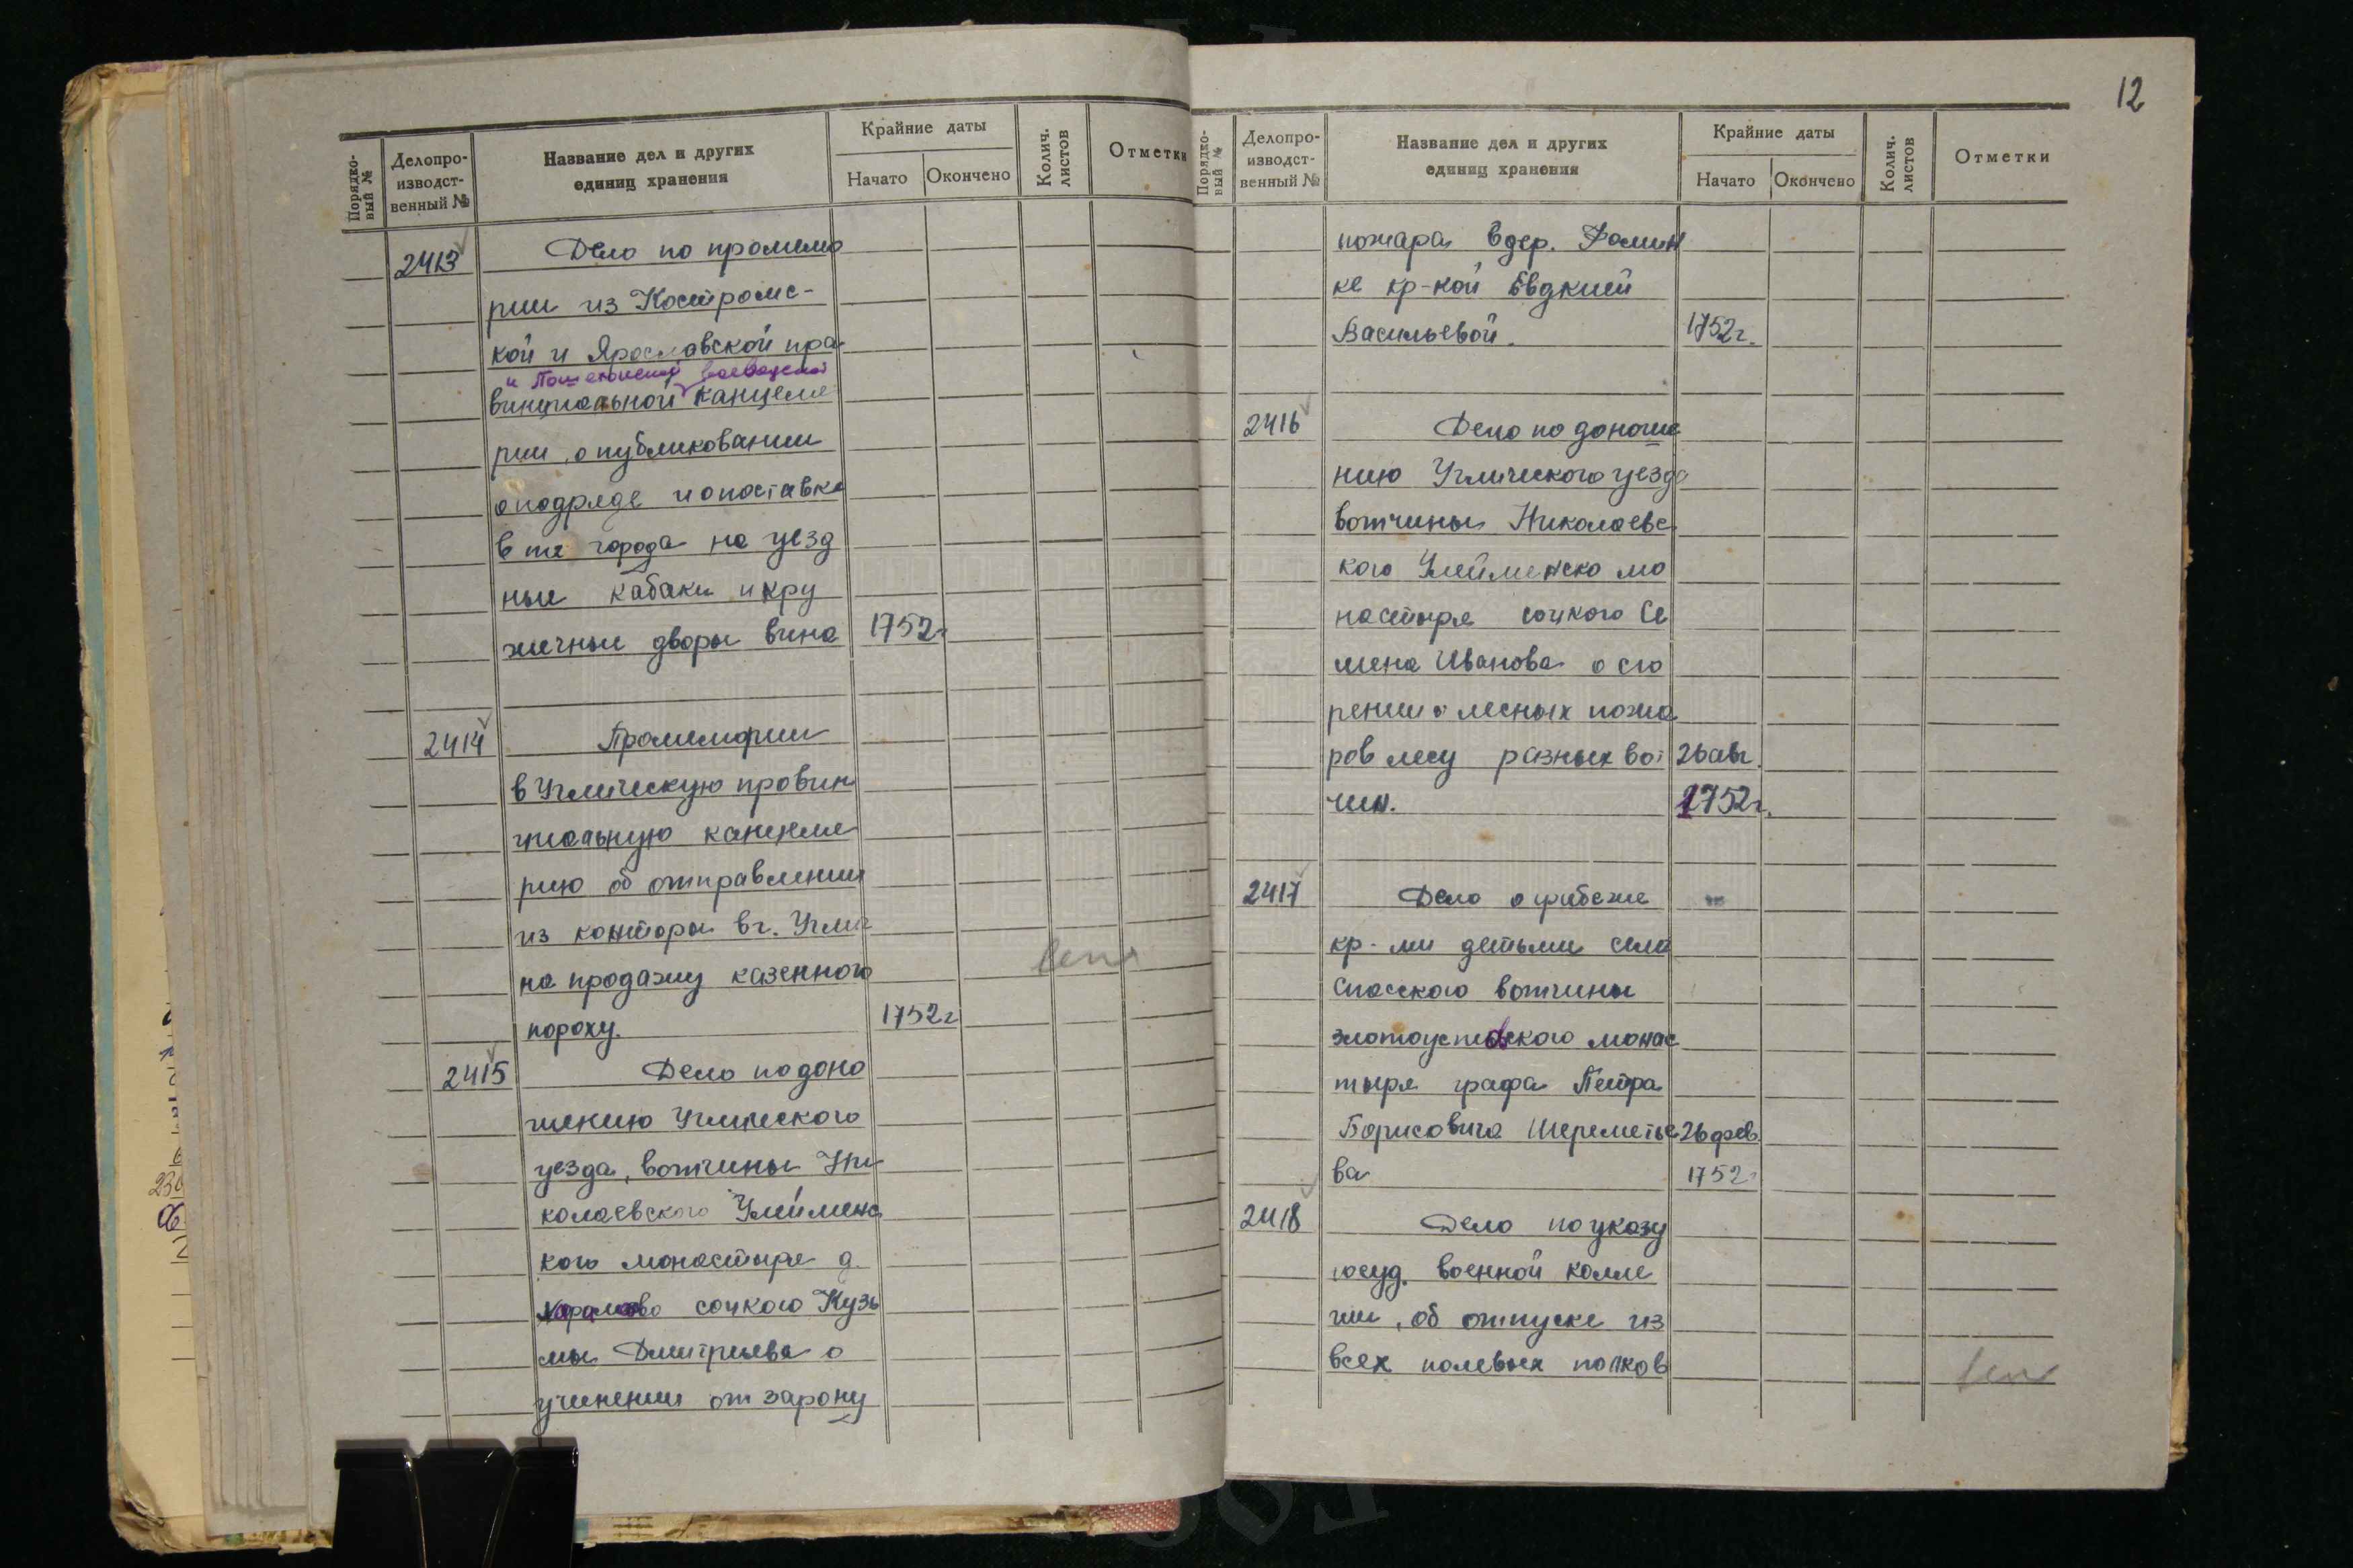 Порядко-
вый №
Делопро-
изводст-
венный №
Название дел и других
единиц хранения
Крайние даты
Начато
Окончено
Колич.
листов
Отметки
2413
Дело по промемо
рии из Костромс-
кой и Ярославской про
и Пошехонской воеводской
винциальной канцеля
рии, о публиковании
о подряде и о поставке
в те города на уезд
ные кабаки и кру
жечные дворы вина
1752г
2414
Промемории
в Угличскую провин
циальную канцеля
рию об отправлении
из конторы в г. Углич
на продажу казенного
пороху.
1752г
2415
Дело по доно
шению Угличского
уезда, вотчины Ни
колаевского Улейменс
кого монастыря д.
сочкого Кузь
мы Дмитриева о
учинении от зарону
12
Порядко-
вый №
Делопро-
изводст-
венный №
Название дел и других
единиц хранения
Крайние даты
Начато
Окончено
Колич.
листов
Отметки
пожара в дер. Фомин
ке кр-кой Евдкией
Васильевой.
1752г.
2416
Дело по доноше
нию Угличского уезда
вотчины Николаевс
кого Улейменско мо
настыря сочкого Се
мена Иванова о сго
рении лесных пожа
ров лесу разных вот
26 авг.
чин.
1752г.
2417
Дело о грабеже
кр-ми детьми села
Спасского вотчины
златоустовского монас
тыря графа Петра
Борисовича Шереметье
26 фев
ва
1752г
2418
Дело по указу
госуд. военной колле
гии, об отпуске из
всех полевых полков